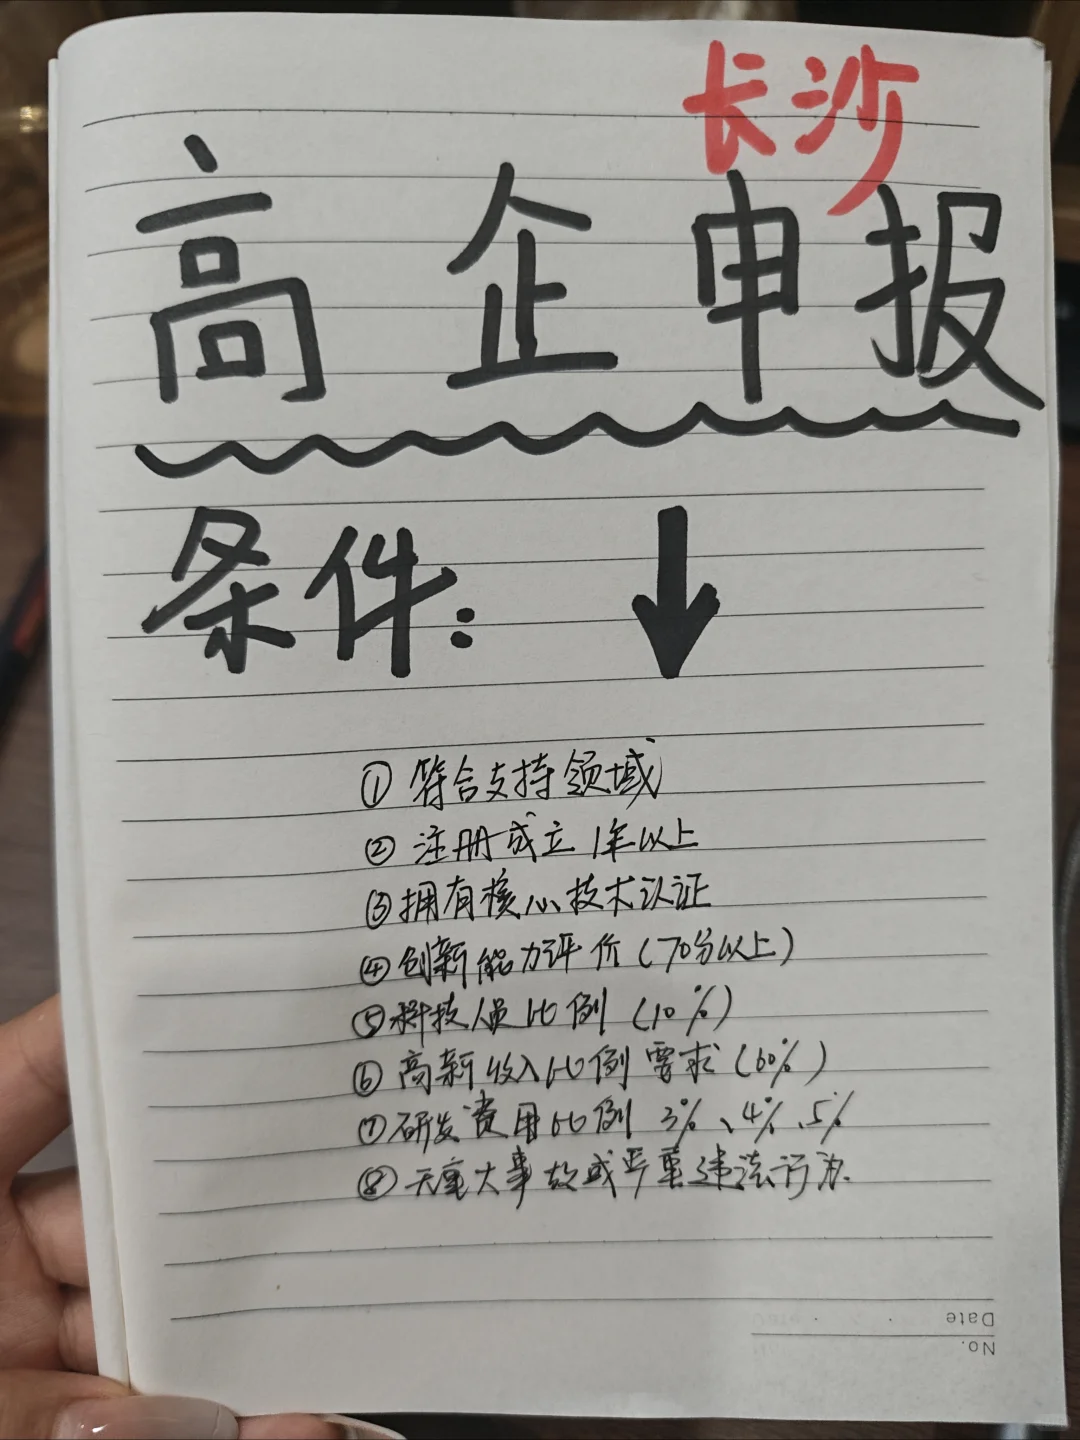 长沙
高企申报
条件:
①符合支持领域
②注册成立1年以上
③拥有核心技术认证
④创新能力评价(70分以上)
⑤科技人员比例(10%)
⑥高新收入比例要求(60%)
⑦研发费用比例 3%、4%、5%
⑧无重大事故或严重违法行为.
Date
No.